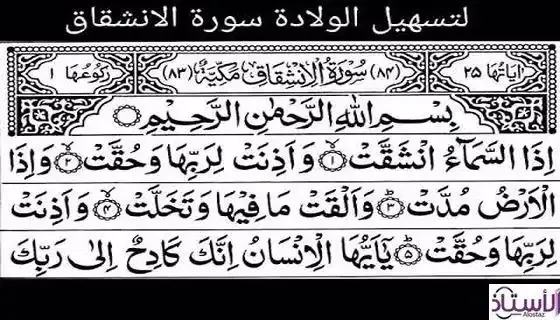 لتسهيل الولادة سورة الانشقاق
اٰیاتُها ٢٥ (٨٤) سُوْرَةُ الْاِنْشِقَاقِ مَكِّيَّةٌ (٨٣) رُكُوْعُها ١
بِسْمِ اللّٰهِ الرَّحْمٰنِ الرَّحِيْمِ
اِذَا السَّمَآءُ انْشَقَّتْ ۙ١ وَ اَذِنَتْ لِرَبِّهَا وَ حُقَّتْ ۙ٢ وَ اِذَا
الْاَرْضُ مُدَّتْ ۙ٣ وَ اَلْقَتْ مَا فِيْهَا وَ تَخَلَّتْ ۙ٤ وَ اَذِنَتْ
لِرَبِّهَا وَ حُقَّتْ ؕ٥ يٰۤاَيُّهَا الْاِنْسَانُ اِنَّكَ كَادِحٌ اِلٰى رَبِّكَ
الأستاذ
Alostaz